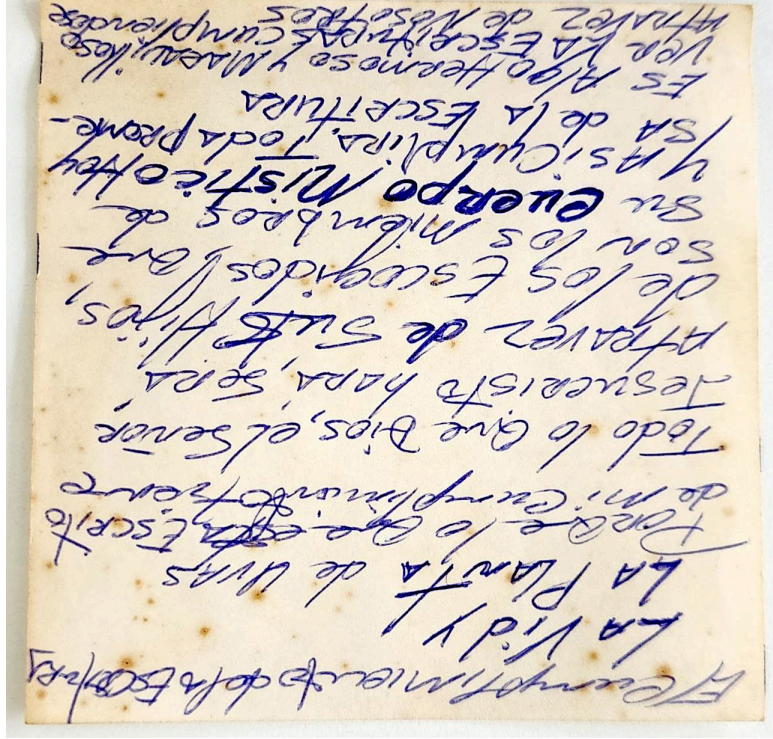 El Cumplimiento de la Escritura
La Vid y
La Planta de Uvas
Porque lo que está Escrito
de mi Cumplimiento tiene
Todo lo que Dios, el Señor
Jesucristo hara, Será
Atravez de Sus Hijos,
de los Escogidos, que
son los miembros de
su cuerpo Mistico Hoy
y Asi Cumplira, Toda prome-
sa de la Escritura
Es Algo Hermoso y Maravilloso
Ver la Escrituras Cumpliendose
Atravez de Nosotros